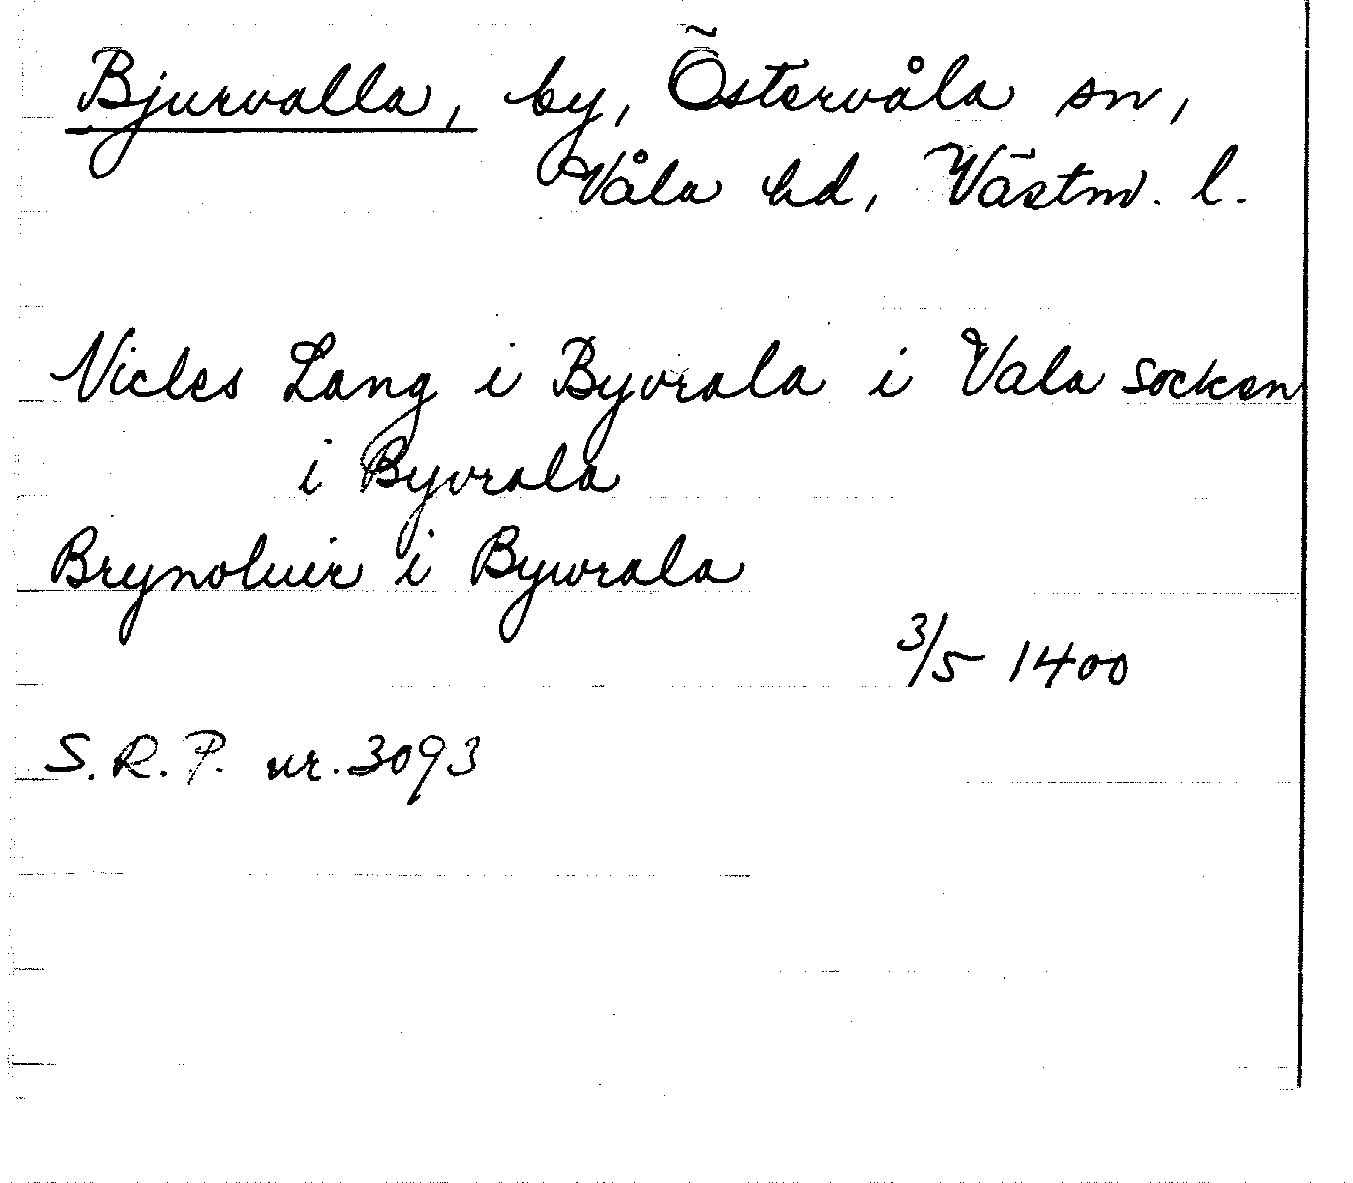 Bjurvalla, by, Östervåla sn,
Våla hd, Västm. l.
Nicles Lang i Byvrala i Vala socken
i Byvrala
Brynoluir i Bywrala
3/5 1400
S.R.P. nr. 3093